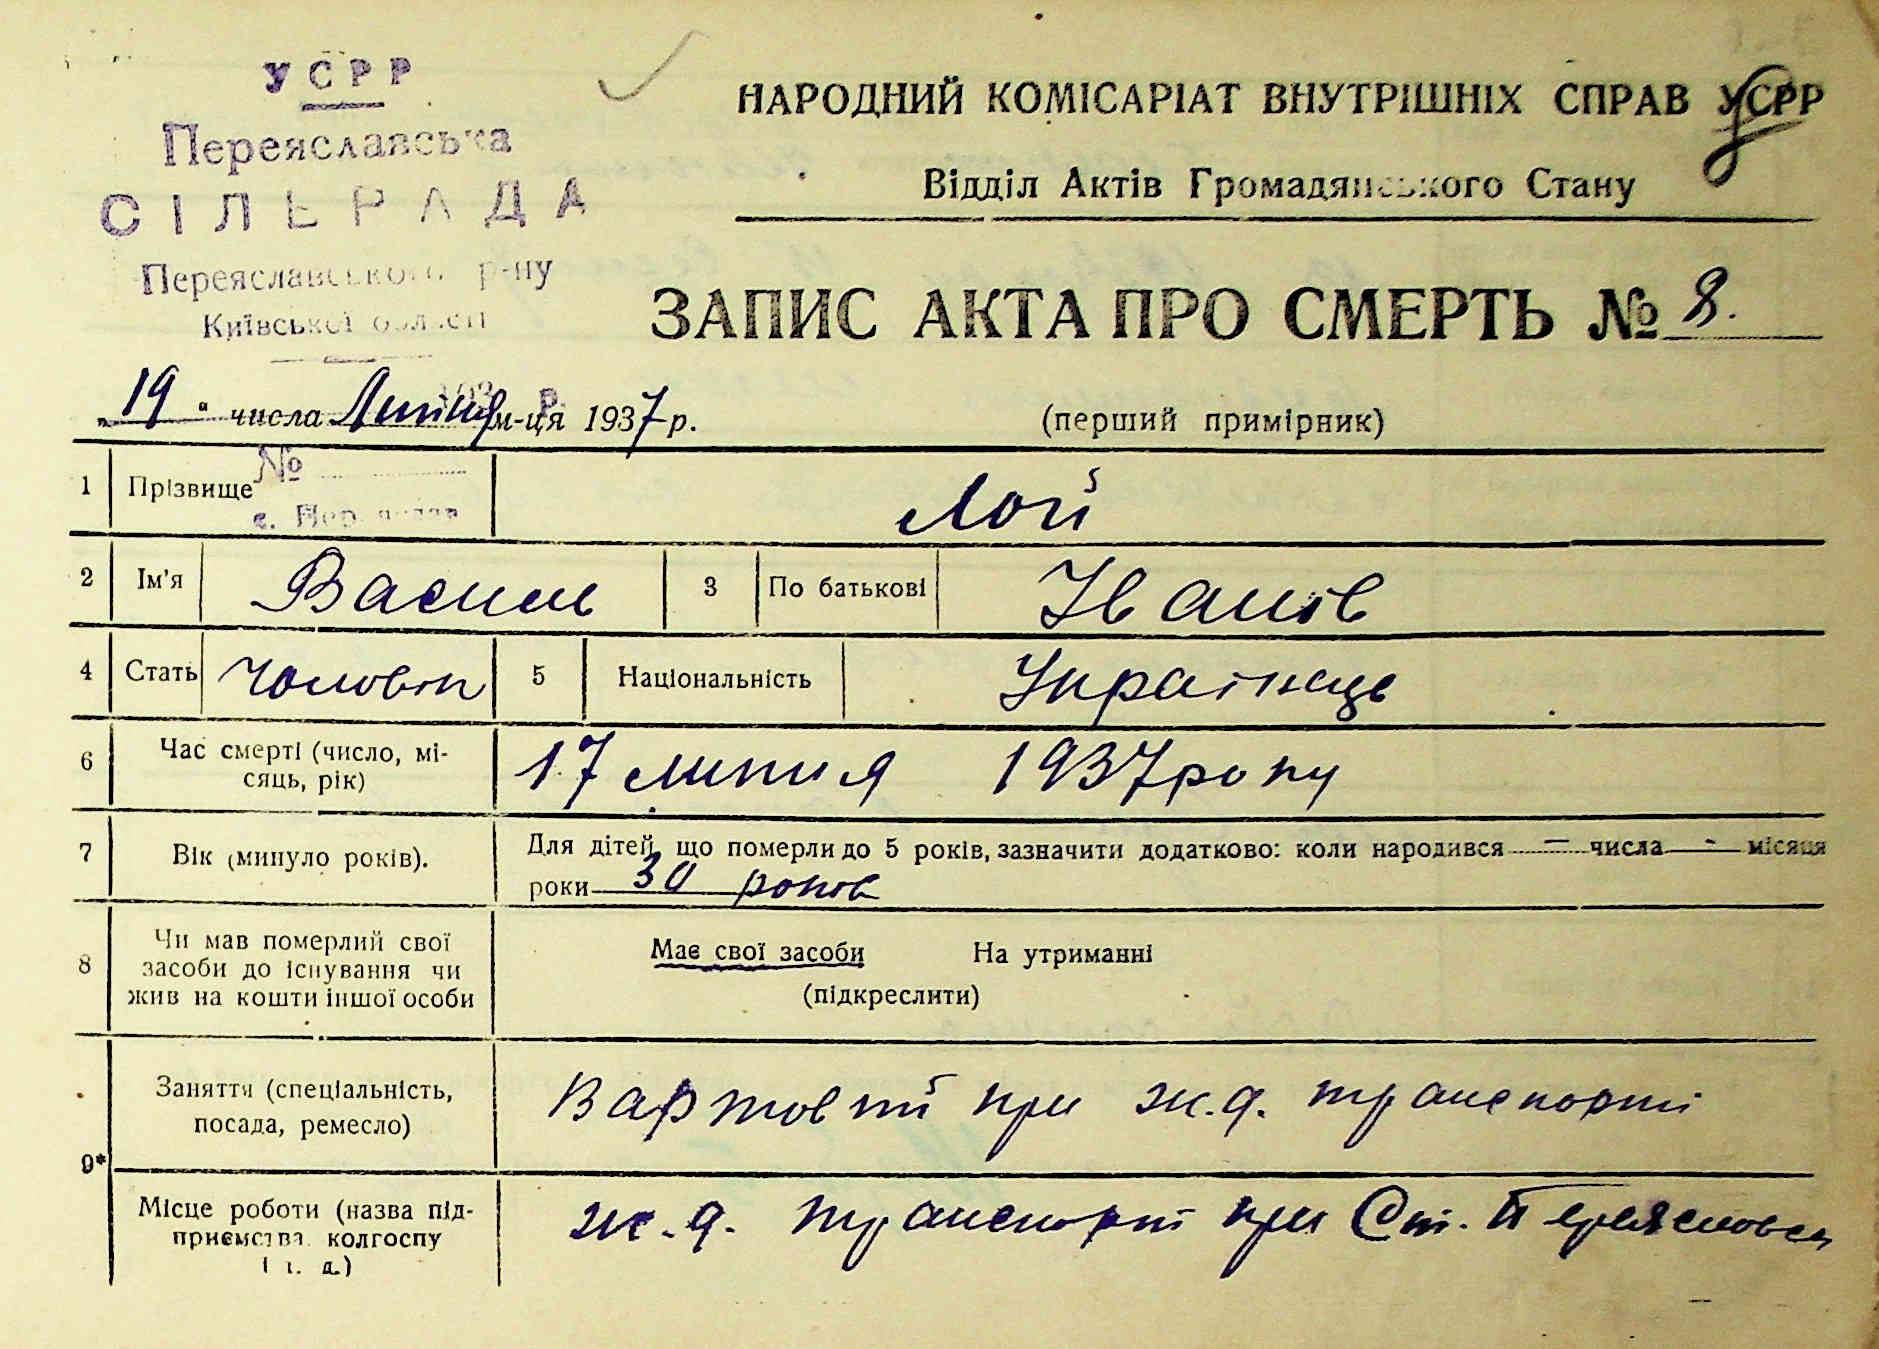 УСРР
Переяславська
СІЛЬРАДА
Переяславського р-ну
Київської області
НАРОДНИЙ КОМІСАРІАТ ВНУТРІШНІХ СПРАВ УСРР
Відділ Актів Громадянського Стану
ЗАПИС АКТА ПРО СМЕРТЬ № 8.
„ 19 " числа Липня м-ця 1937 р.
(перший примірник)
№
1 Прізвище Лой
2 Ім'я Василь 3 По батькові Іванів
4 Стать чоловік 5 Національність Українець
6 Час смерті (число, мі-
сяць, рік) 17 липня 1937 року
7 Вік (минуло років). Для дітей, що померли до 5 років, зазначити додатково: коли народився — числа - місяця
роки 30 років
8 Чи мав померлий свої
засоби до існування чи
жив на кошти іншої особи
Має свої засоби На утриманні
(підкреслити)
9* Заняття (спеціальність,
посада, ремесло) Вартовий при ж.д. транспорті
Місце роботи (назва під-
приємства, колгоспу
і т. д.) ж.д. транспорт при Ст. Переяславка